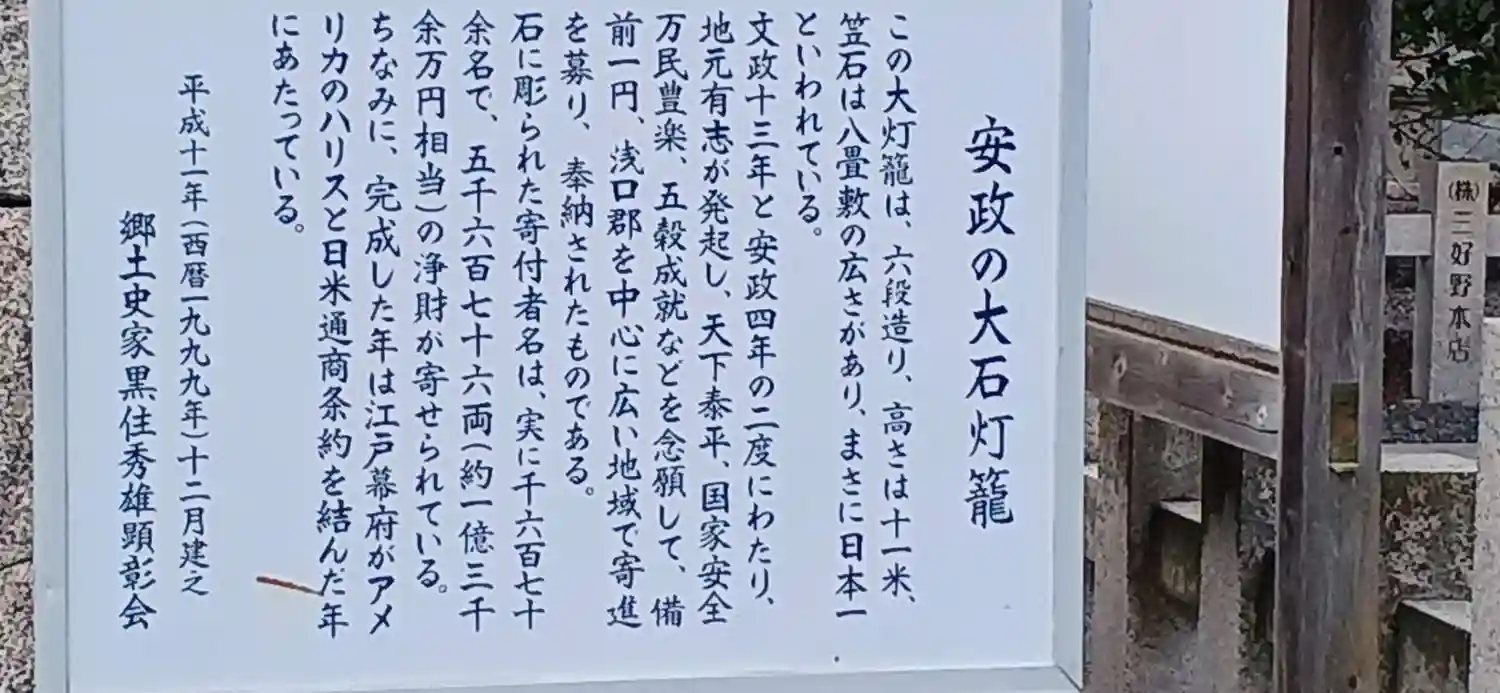 安政の大石灯籠
この大灯籠は、六段造り、高さは十一米、
笠石は八畳敷の広さがあり、まさに日本一
といわれている。
文政十三年と安政四年の二度にわたり、
地元有志が発起し、天下泰平、国家安全
万民豊楽、五穀成就などを念願して、備
前一円、浅口郡を中心に広い地域で寄進
を募り、奉納されたものである。
石に彫られた寄付者名は、実に千六百七十
余名で、五千六百七十六両(約一億三千
余万円相当)の浄財が寄せられている。
ちなみに、完成した年は江戸幕府がアメ
リカのハリスと日米通商条約を結んだ年
にあたっている。
平成十一年(西暦一九九九年)十二月建之
郷土史家黒住秀雄顕彰会
(株)三好野本店